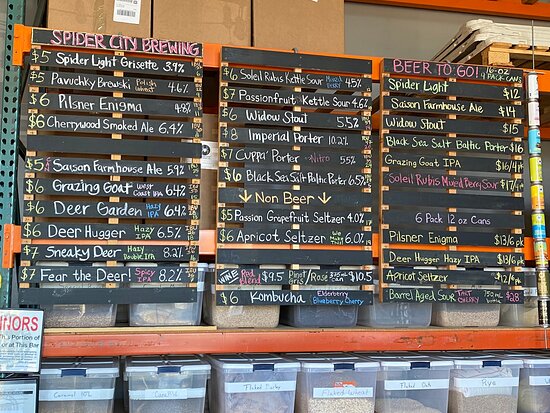 SPIDER CITY BREWING
$5 Spider Light Grisette 3.9%
$5 Pavuchky Brewski Polish Wheat 4.6%
$6 Pilsner Enigma 4.8%
$6 Cherrywood Smoked Ale 6.4%
$5 Saison Farmhouse Ale 5.9%
$6 Grazing Goat West Coast IPA 6.4%
$6 Deer Garden Hazy IPA 6.4%
$6 Deer Hugger Hazy IPA 6.5%
$7 Sneaky Deer Hazy Double IPA 8.2%
$7 Fear the Deer! Spicy IPA 8.2%
$6 Soleil Rubis Kettle Sour Mixed Berry 4.5%
$7 Passionfruit Kettle Sour 4.6%
$6 Widow Stout 5.5%
$8 Imperial Porter 10.2%
$7 Cuppa' Porter Nitro 5.5%
$6 Black Sea Salt Baltic Porter 6.5%
↓ Non Beer ↓
$5 Passion Grapefruit Seltzer 4.0%
$6 Apricot Seltzer 4.0%
WINE Red Blend $9.5 Pinot Gris/Rosé $10.5
$6 Kombucha Elderberry Blueberry Cherry
BEER TO GO! 16 oz 4 Pack Cans
Spider Light $12
Saison Farmhouse Ale $14
Widow Stout $15
Black Sea Salt Baltic Porter $16
Grazing Goat IPA $16/4pk
Soleil Rubis Mixed Berry Sour $17/4pk
6 Pack 12 oz Cans
Pilsner Enigma $13/6pk
Deer Hugger Hazy IPA $13/6pk
Apricot Seltzer $12/6pk
Barrel Aged Sour Tart Cherry 750mL $28
NORS
This Portion of
or at This Bar
Caramel 10L
CaraPils
Flaked Barley
Flaked Wheat
Flaked Oats
Rye